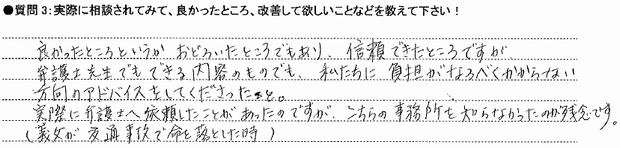 ●質問3:実際に相談されてみて、良かったところ、改善して欲しいことなどを教えて下さい!
良かったところというか おどろいたところでもあり、信頼できたところですが
弁護士先生でもできる内容のものでも、私たちに負担がなるべくかからない
方向のアドバイスをしてくださったこと。
実際に弁護士へ依頼したことがあったのですが、こちらの事務所を知らなかったのが残念です。
(義父が交通事故で命を落とした時)